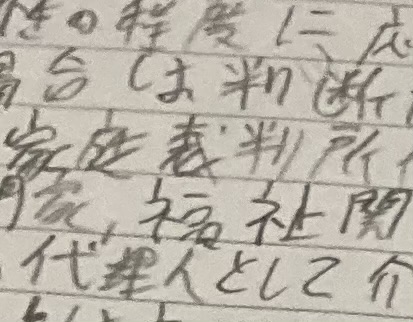 の程度に応
合は判断
家庭裁判所
家,福祉関
代理人として介